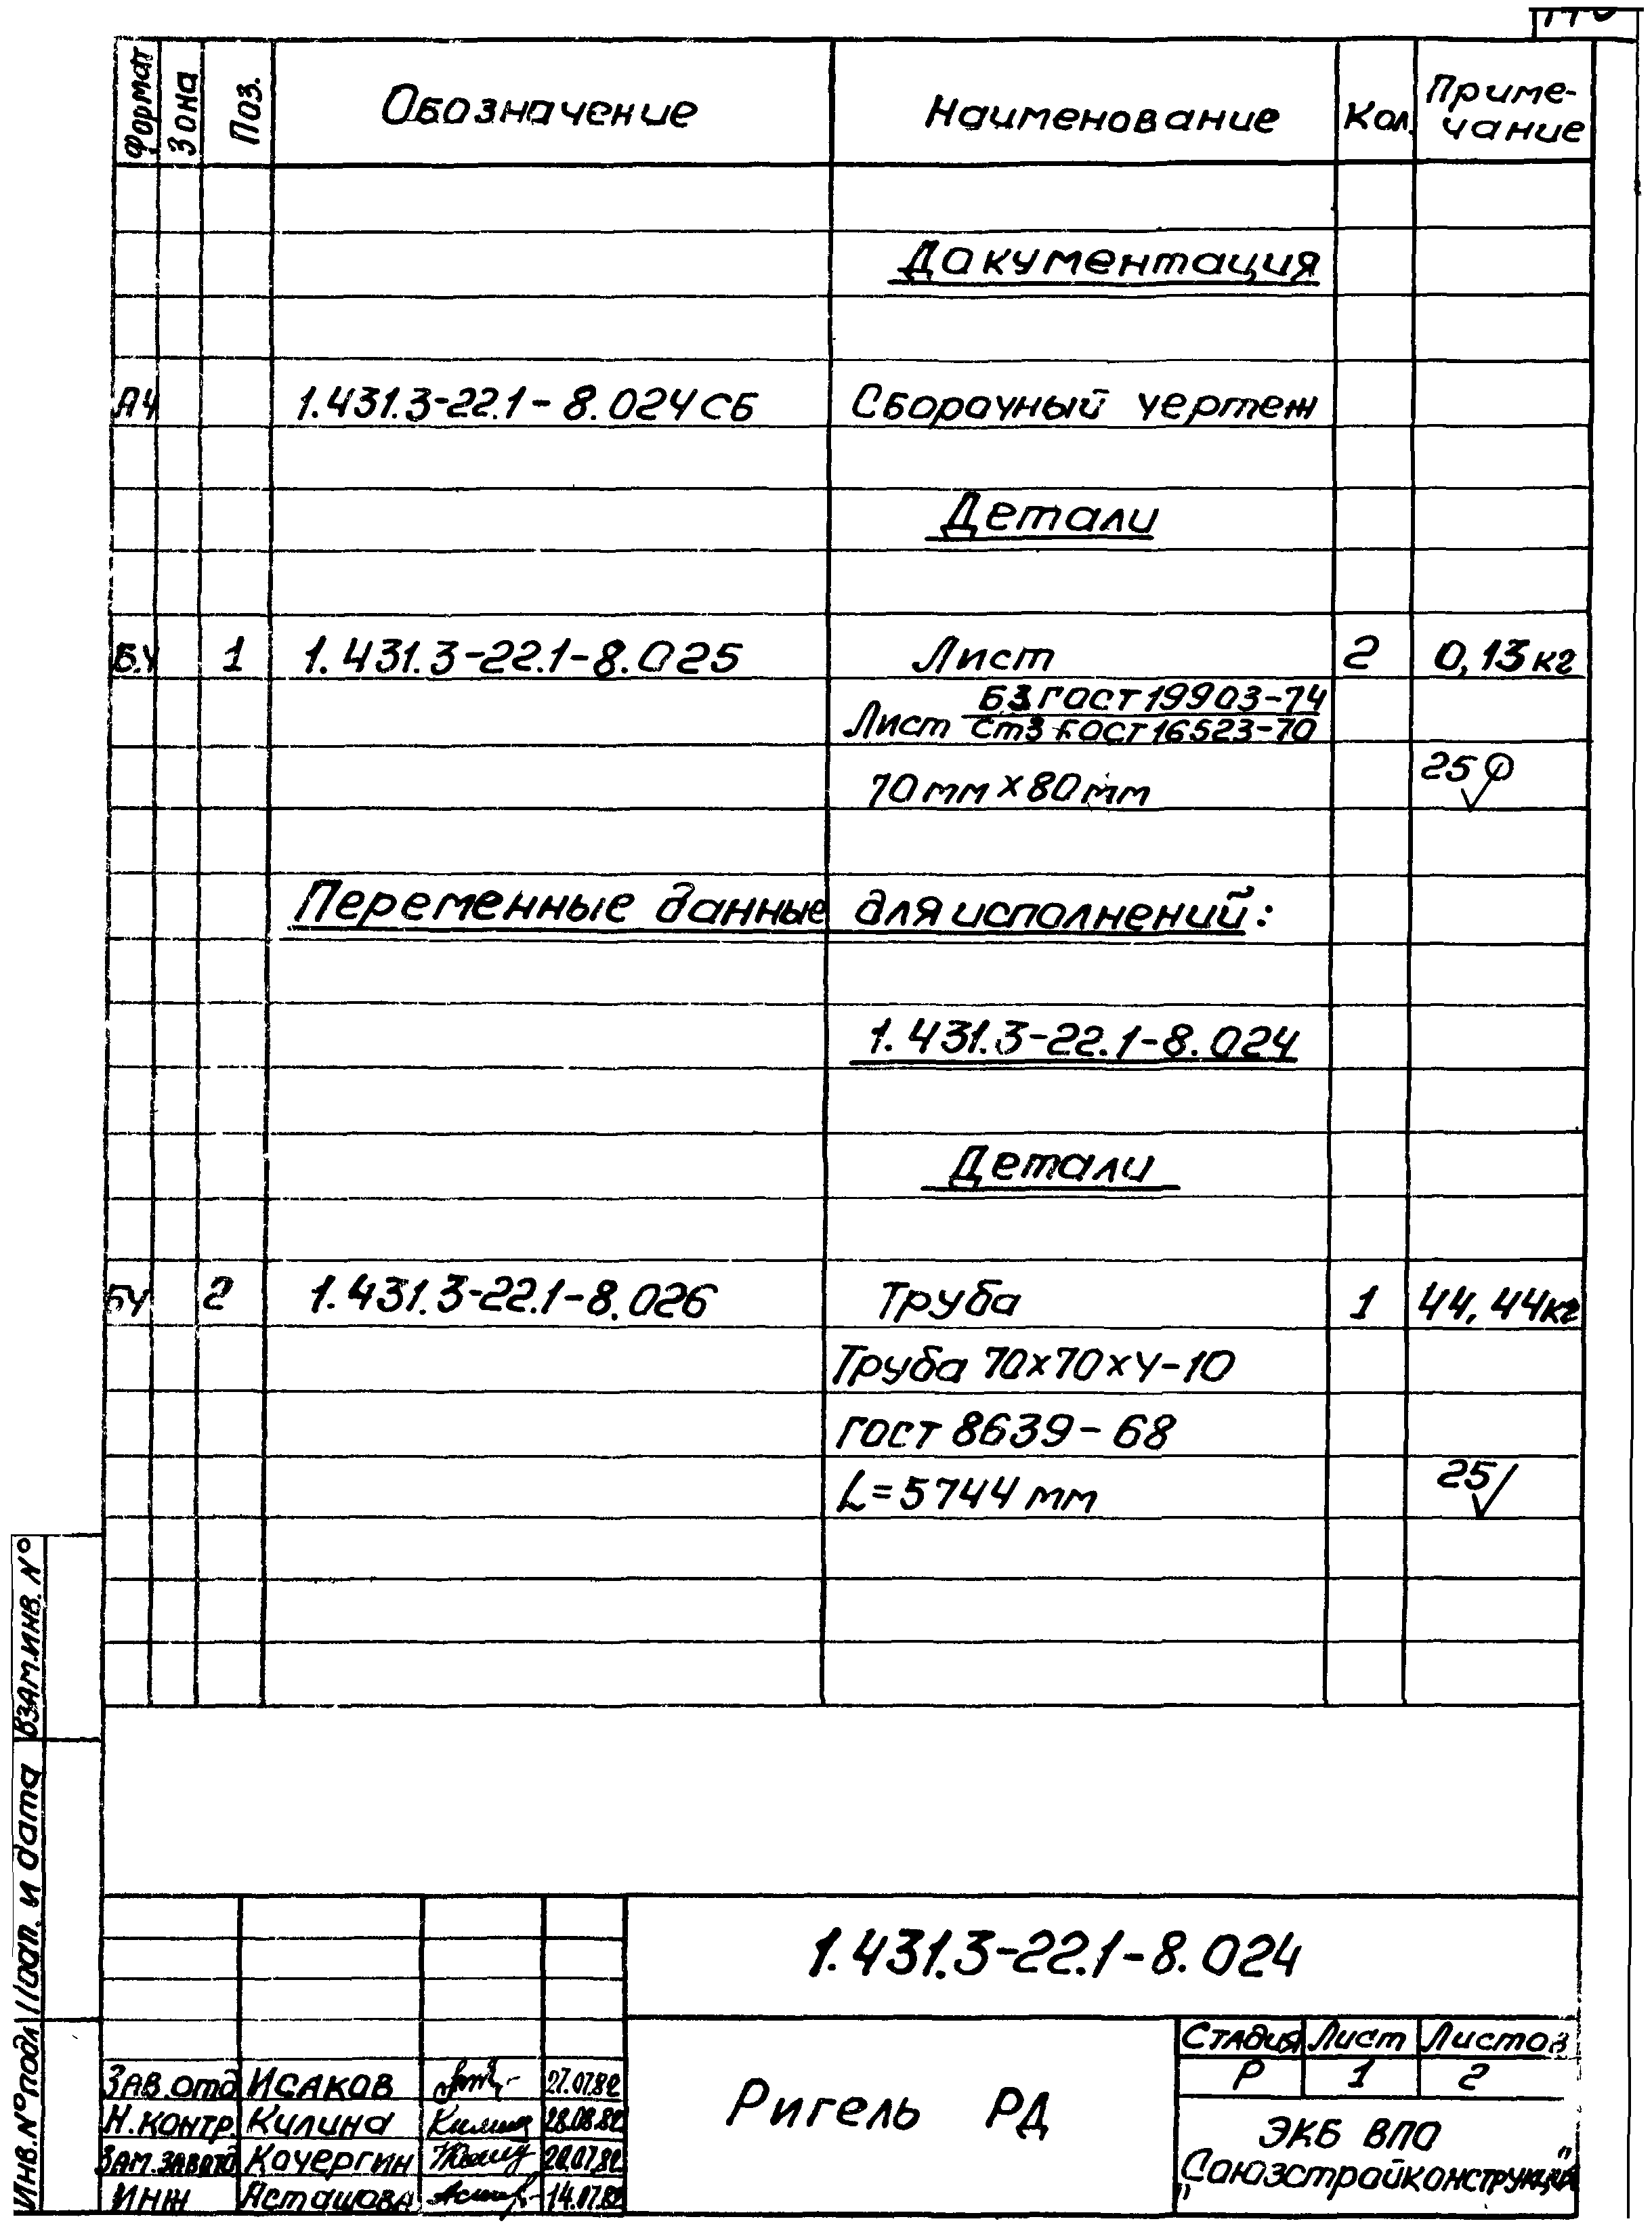 Формат
Зона
Поз.
Обозначение
Наименование
Кол.
Приме-
чание
Документация
А4 1.431.3-22.1-8.024СБ Сборочный чертеж
Детали
Б.Ч 1 1.431.3-22.1-8.025 Лист 2 0,13кг
Лист Б3 ГОСТ 19903-74
Ст3 ГОСТ 16523-70
70мм х 80мм 25
Переменные данные для исполнений:
1.431.3-22.1-8.024
Детали
БЧ 2 1.431.3-22.1-8.026 Труба 1 44,44кг
Труба 70х70х4-10
ГОСТ 8639-68
L=5744мм 25
Взам.инв. №
Подп. и дата
Инв.№подл
1.431.3-22.1-8.024
Стадия Лист Листов
Р 1 2
Ригель РД
ЭКБ ВПО
"Союзстройконструкция"
Зав.отд Исаков 27.07.82
Н.контр. Килина 28.08.82
Зам.завотд Кочергин 20.07.82
Инж Асташова 14.07.82